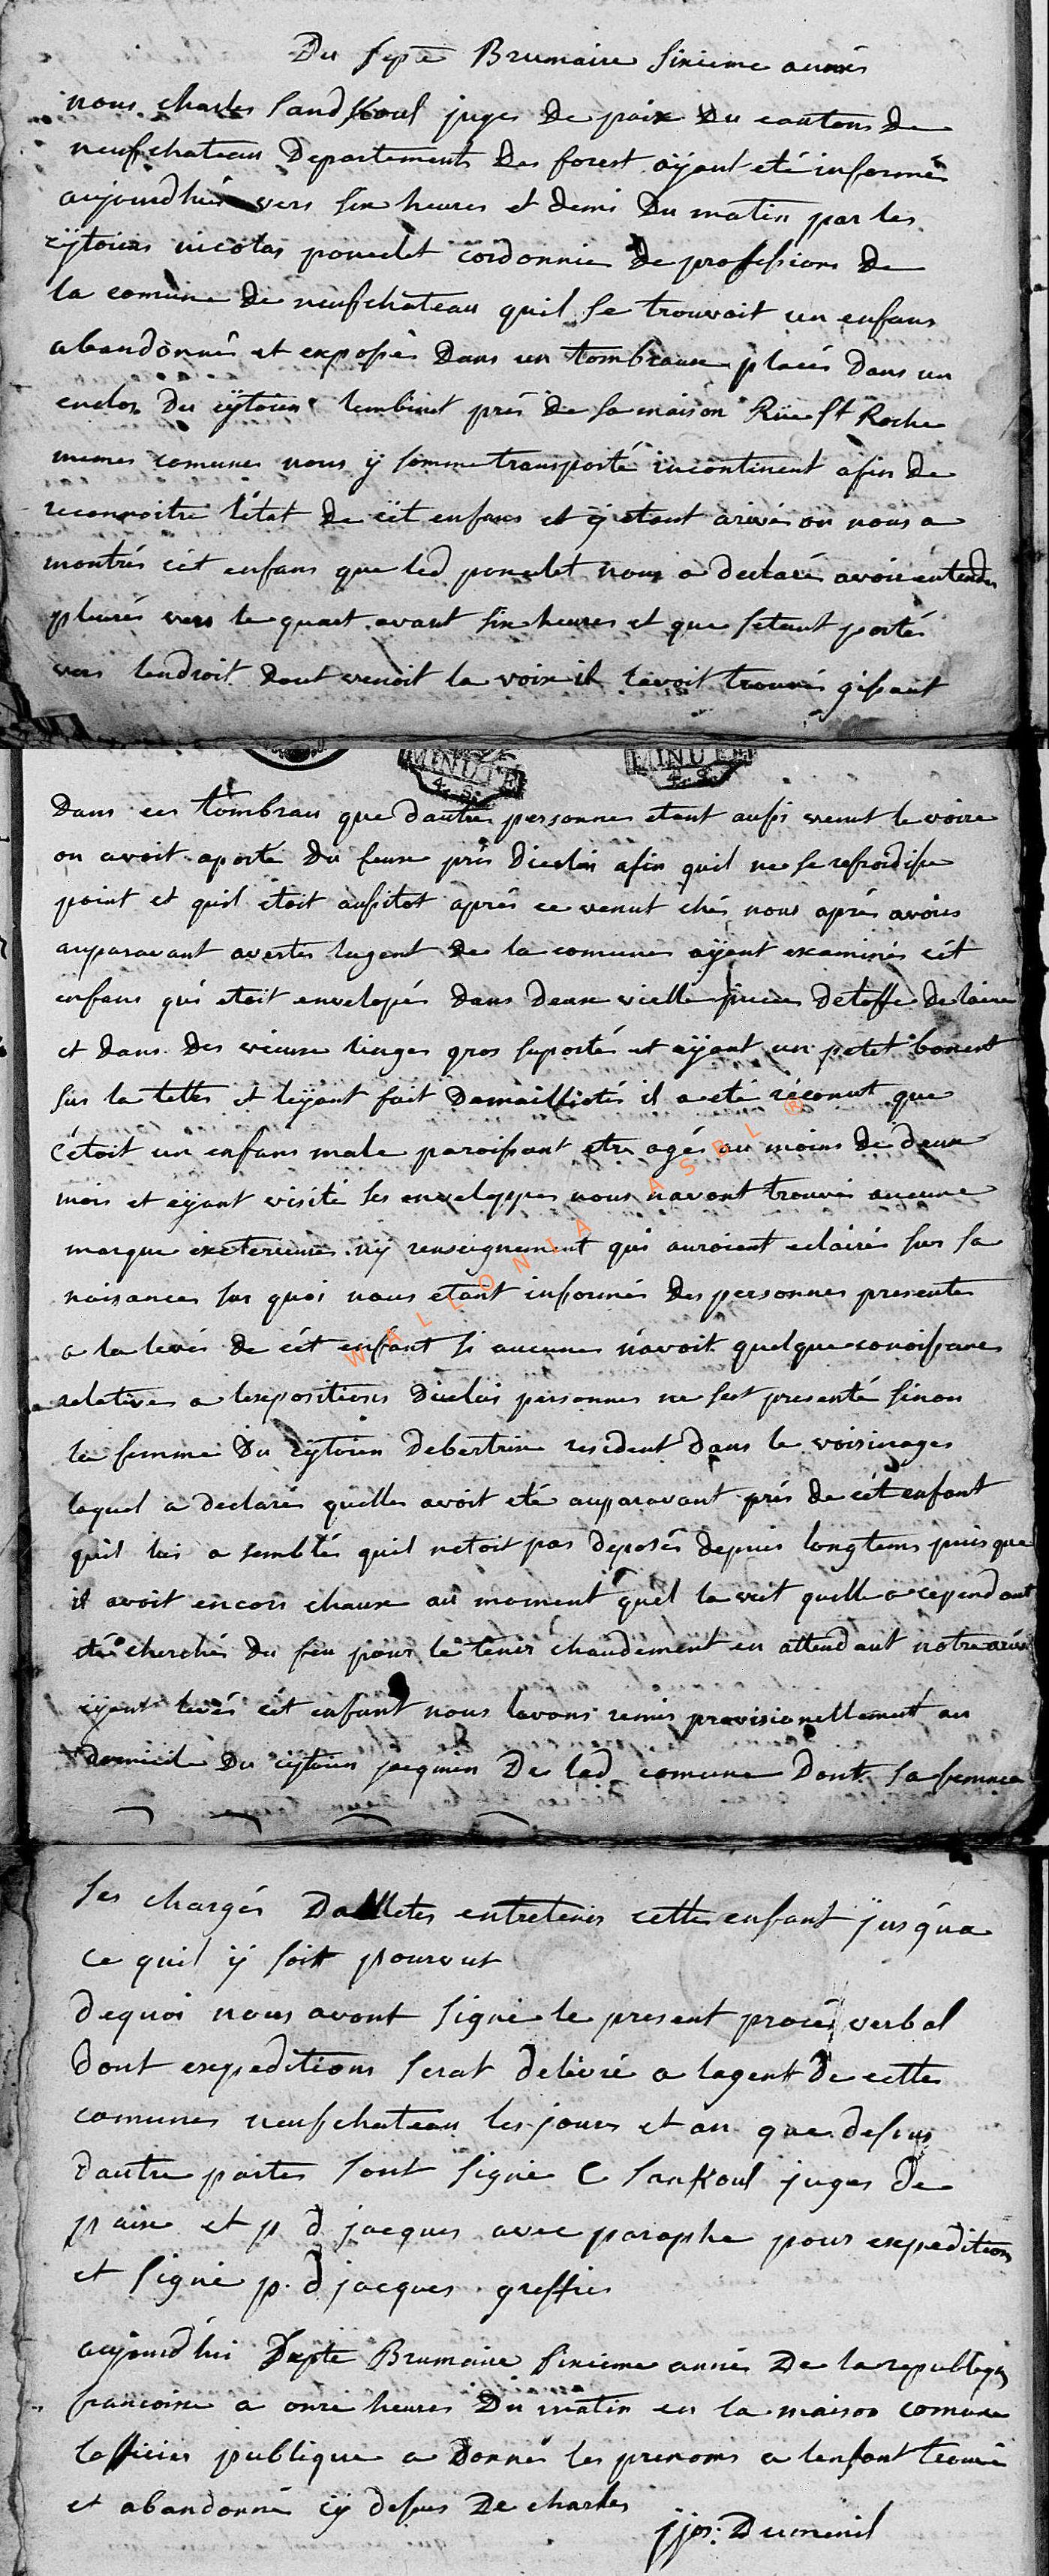 Du septe Brumaire sixieme année
nous charles Sandkoul juges De paix Du cantons De
neufchateau Departements Des forest aÿant eté informés
aujourdhui vers six heures et demi Du matin par les
cÿtoiens nicolas poncelet cordonnier De professions De
la comune De neufchateau quil se trouvoit un enfans
abandonnés et exposés Dans un tombreaux placés Dans un
enclos Du cÿtoien lambinet prés De sa maison Rüe St Roche
memes comunes nous ÿ somme transporté incontinent afin De
reconnoitre létat De cét enfans et ÿ etant arivés on nous a
montrés cét enfans que led poncelet nous a declaré avoir entendu
pleurés vers le quart avant six heures et que setant portés
vers lendroit dont venoit la voix il lavoit trouvés gissant
Dans ces tombrau que dautres personnes etant aussi venut le voire
on avoit aporté Du feux prés Dicelui afin quil ne se refroidisse
point et quil étoit aussitot aprés ce venut chés nous aprés avoirs
auparavant avertis lagent De la comunes aÿent examinés cét
enfans qui etoit envelopés dans deux vielle pieces detoffe de laine
et dans Des vieux linges gros suportés et aÿant un petet bonent
sur la tettes et leÿant fait Demaillotés il a eté réconut que
cétoit un enfans male paroissant etre agés au moins De deux
mois et eÿant visité les enveloppes nous navont trouvés aucune
marque exeterieures nÿ renseignement qui auroient eclairés sur sa
naisances sur quoi nous etant informés Des personnes presentes
a la levés de cét enfant si aucunes navoit quelque conoissances
relatives a lexpositions Dicelui personnes ne sest presenté sinon
la femme Du cÿtoien Debertrix resident dans le voisinages
laquel a declarés quelles avoit eté auparavant prés de cét enfant
quil lui a semblés quil netoit pas deposés depuis longtems puis que
il avoit encors chaux au moment quel la vut quelle a cependant
été cherchés du feu pour le tenir chaudement en attendant notre arivé
eÿant levés cét enfant nous lavons remis provisionellement au
domicile Du cÿtoien jacqmin De lad comune Dont sa femme
ses chargés Dalletes entretenir cette enfant jusqua
ce quil ÿ soit pourvut
dequoi nous avont signé le present procés verbal
dont expeditions serat delivré a lagent De cette
comunes neufchateau les jours et an que dessus
dautre partes sont signé C Sankoul juges De
paix et p d jacques avec paraphe pour expeditions
et signé p. d jacques greffier
aujourdhui Septe Brumaire sixieme année De la republique
francoise a onze heures Du matin en la maison comune
lofficier publique a Donnés les prenoms a lenfant trouvé
et abandonné cÿ dessus De charles
jjos: Dumenil
MINUTE
4. S.
MINUTE
4. S.
WALLONIA ASBL ®